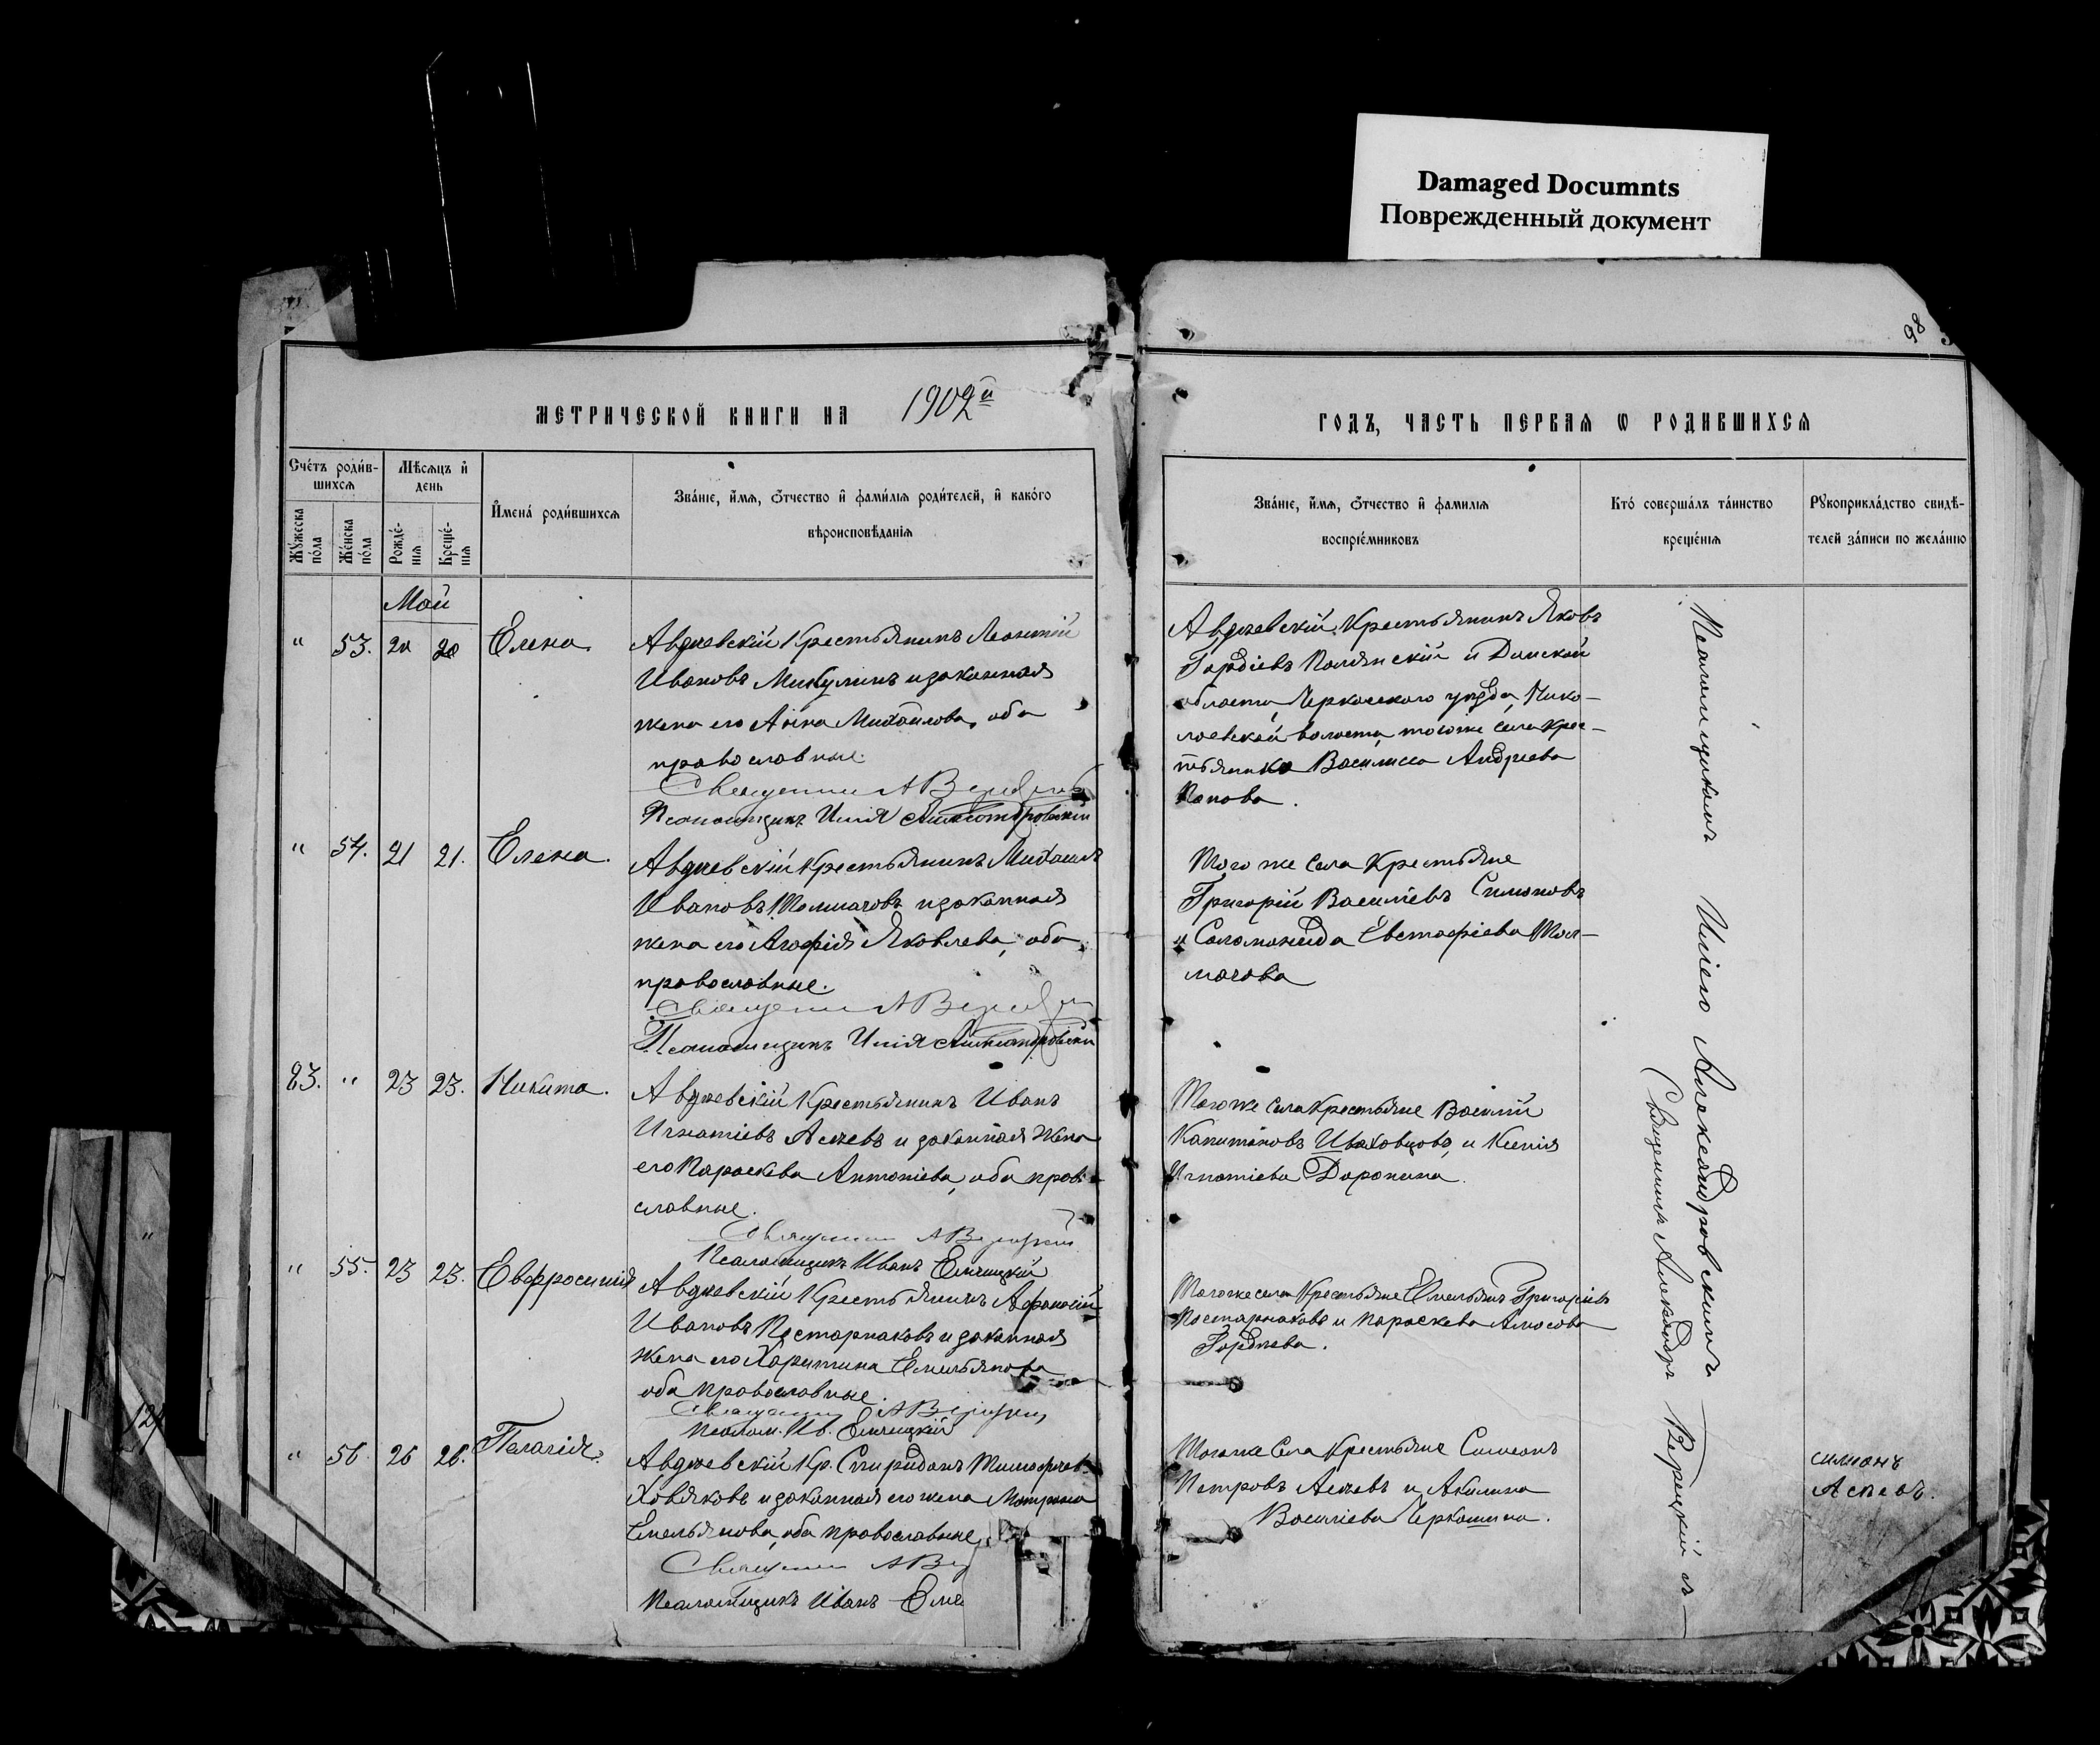 Damaged Documnts
Поврежденный документ
98
МЕТРИЧЕСКОЙ КНИГИ НА 1902й
ГОДЪ, ЧАСТЬ ПЕРВАЯ Ѡ РОДИВШИХСЯ
Счетъ родившихся
Мѣсяцъ и день
Имена родившихся
Званіе, имя, отчество и фамилія родителей, и какого вѣроисповѣданія
Мужеска пола
Женска пола
Рожденія
Крещенія
Званіе, имя, отчество и фамилія воспріемниковъ
Кто совершалъ таинство крещенія
Рукоприкладство свидѣтелей записи по желанію
Май
" 53. 20 20 Елена.
Авдѣевскій Крестьянинъ Леонтій
Ивановъ Микулинъ и законная
жена его Анна Михайлова, оба
православные.
Священникъ А Верецкій
Псаломщикъ Илія Александровскій
Авдѣевскій Крестьянинъ Яковъ
Гордіевъ Полянскій и Донской
области, Черкасского уѣзда, Нико-
лаевской волости, того же села крес-
тьянка Василисса Андреева
Попова.
" 54. 21 21. Елена.
Авдѣевскій Крестьянинъ Михаилъ
Ивановъ Толмачовъ и законная
жена его Агафія Яковлева, оба
православные.
Священникъ А Верецкій
Псаломщикъ Илія Александровскій
Того же села Крестьяне
Григорій Василіевъ Симоновъ
и Соломонида Евстафіева Тол-
мачова
23. " 23 23. Никита.
Авдѣевскій Крестьянинъ Иванъ
Игнатіевъ Асѣевъ и законная жена
его Параскева Антоніева, оба право
славные.
Священникъ А Верецкій
Псаломщикъ Иванъ
Того же села Крестьяне Василій
Капитоновъ Иваховцовъ, и Ксенія
Игнатіева Доронина.
" 55. 23 23. Евфросинія
Авдѣевскій Крестьянинъ Афанасій
Ивановъ Постарнаковъ и законная
жена его Харитина Емельянова
оба православные.
Священникъ А Верецкій
Псалом. Ив.
Того же села Крестьяне Емельянъ Григоріевъ
Постарнаковъ и Параскева Амосова
Гордѣева.
" 56. 26 26. Пелагія.
Авдѣевскій Кр. Спиридонъ Тимофеев.
Ховяковъ и законная его жена Матрона
Емельянова, оба православные.
Священникъ А Вер
Псаломщикъ Иванъ
Того же села Крестьяне Симеонъ
Петровъ Асѣевъ и Акилина
Василіева Черкашина.
Священникъ Александръ Верецкій съ
Псаломщикомъ Иліею Александровскимъ
симионъ
Асѣевъ.